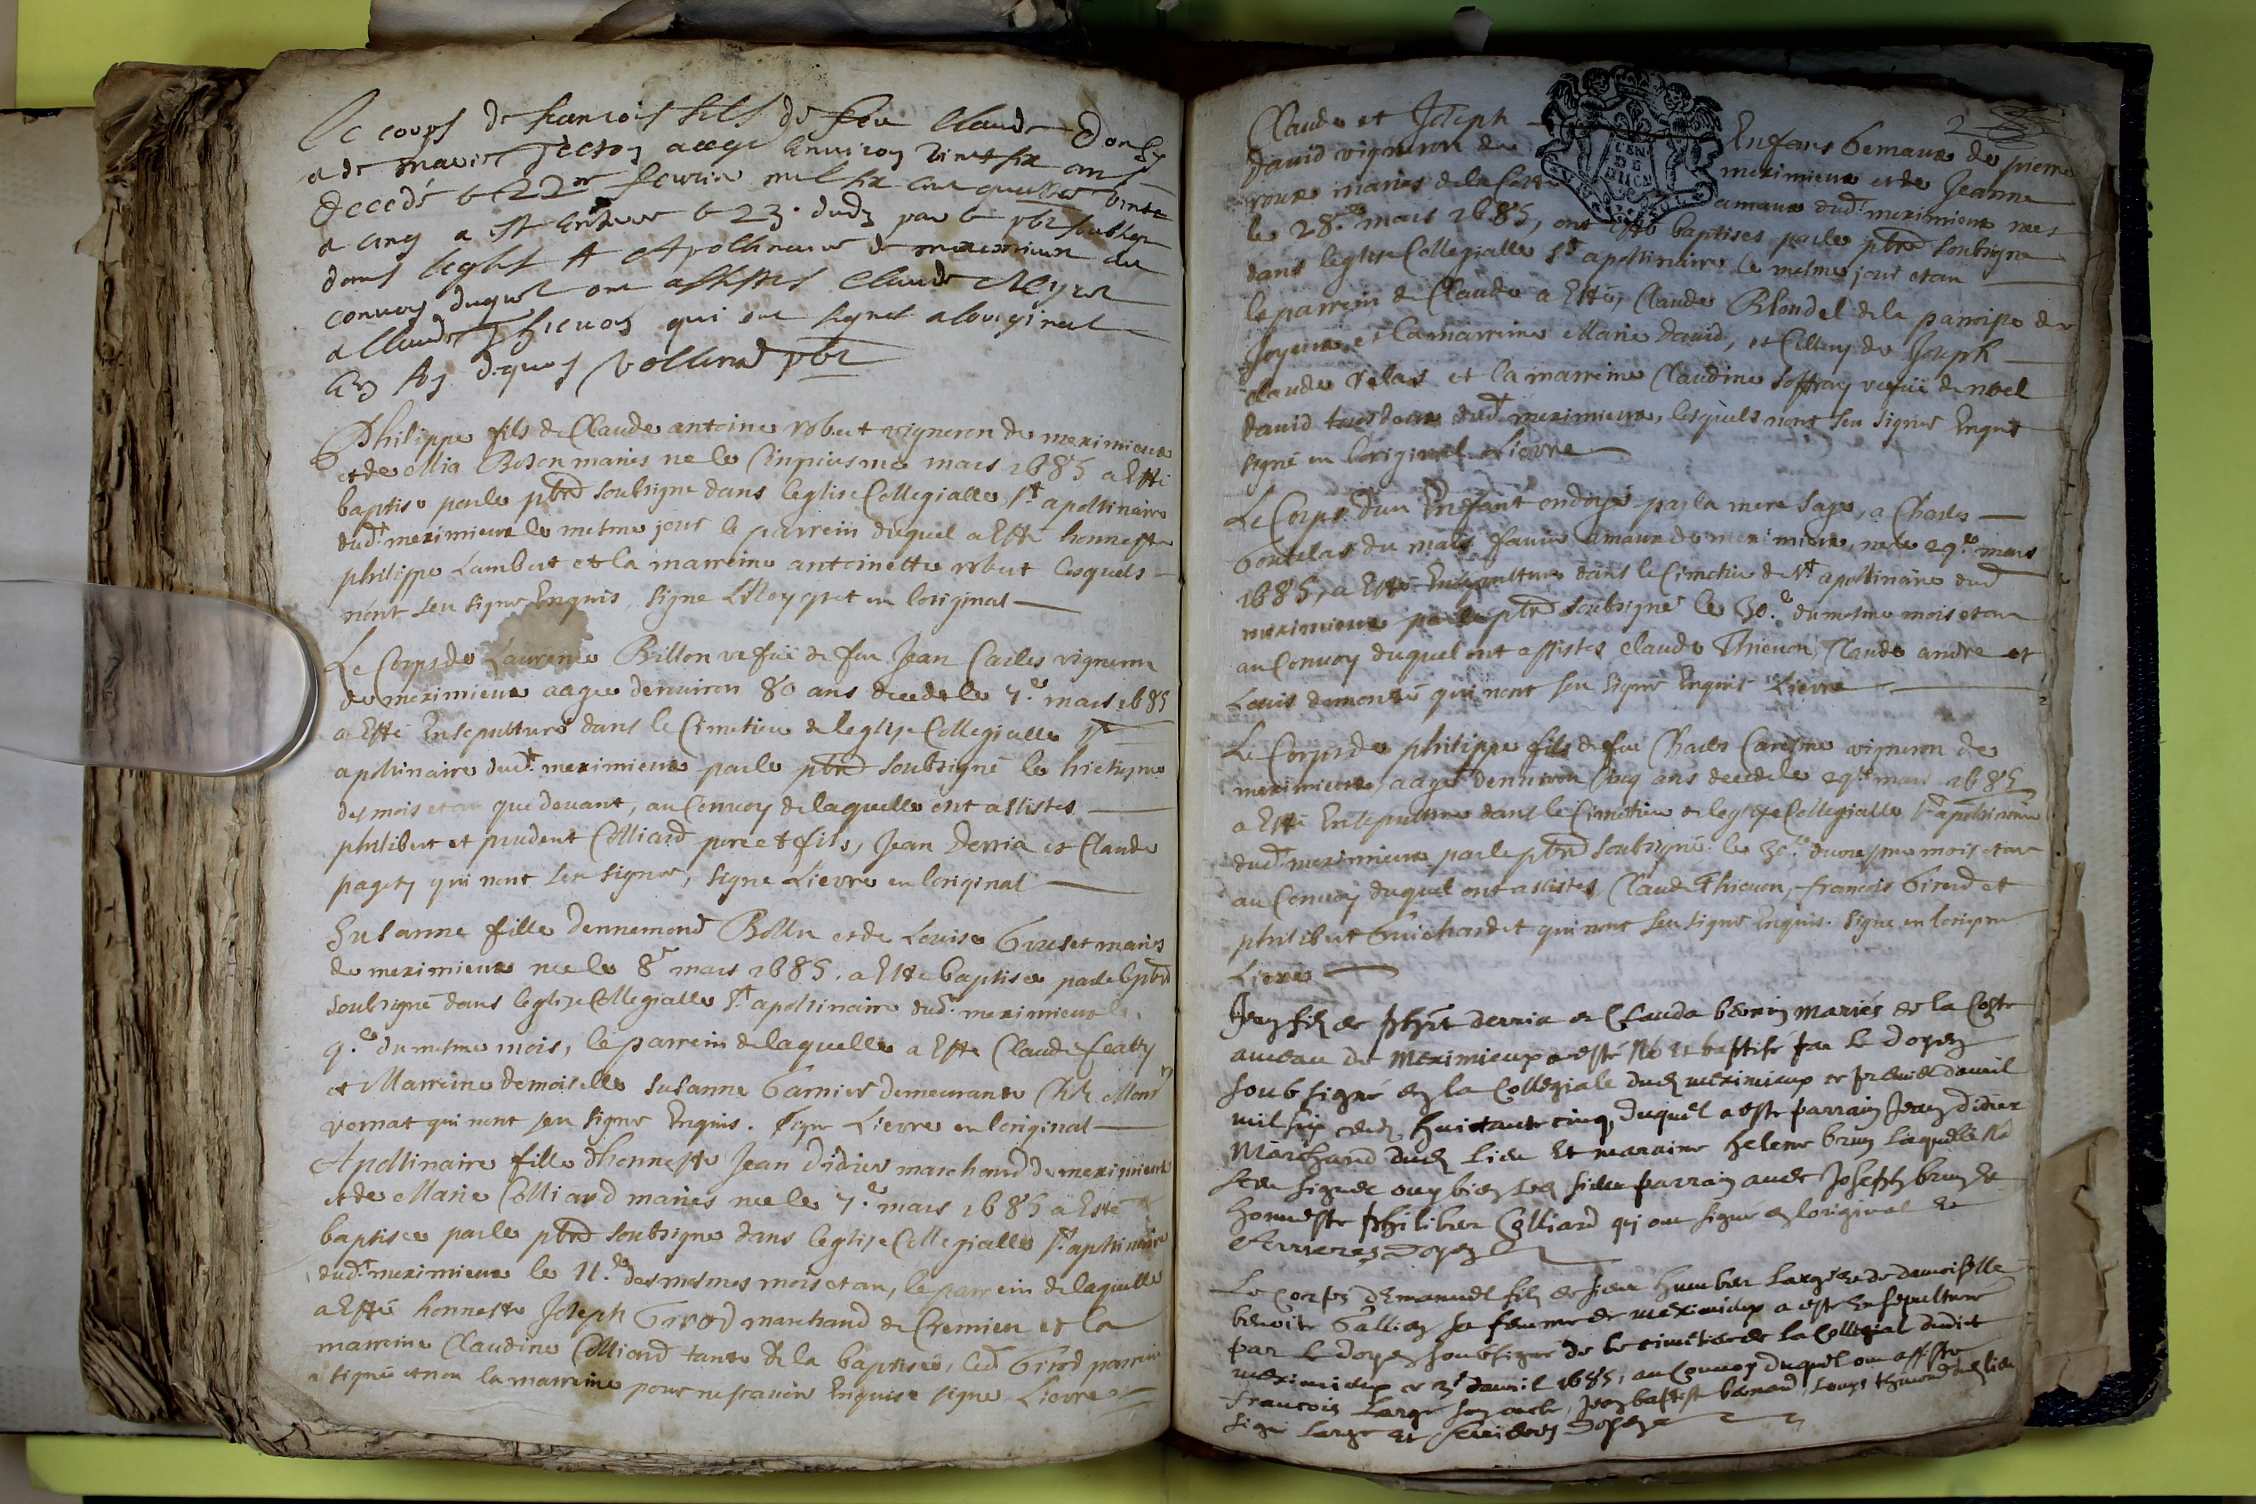 Le corps de francois fils de feu Claude
a de marie aage Environ vint six ans
decedé le 22me feurier mil six cent quattre vints
a cinq a est Enterre le 23. dud par le pbr
dans leglise St Apollinaire de meximieux au
convoy duquel ont assistes Claude
a Claude Thieuon qui ont signes a loriginal
Volland pbr
Philippe fils de Claude antoine robert vigneron de meximieux
et de Mia Boson maries ne le Cinquiesme mars 1685 a Esté
baptise par le pbre soubsigne dans leglise Collegialle St apollinaire
dud. meximieux le mesme jour le parrein duquel a Esté honneste
philippe Lambert et la marreine antoinette robert lesquels
nont seu signer Enquis, signe en loriginal
Le Corps de Laurence Billon vefue de feu Jean Carles vigneron
de meximieux aagee denuiron 80 ans decede le 7.e mars 1685
a Esté Ensepulturé dans le Cimetiere de leglise Collegialle St
apollinaire dud. meximieux par le pbre soubsigné le
des mois et an que deuant, au Conuoy de laquelle ont assistes
philibert et prudent Colliard pere et fils, Jean Derria et Claude
pagety qui nont seu signer, signe Lievre en loriginal
Susanne fille dennemond Bollu et de Louise Gruset maries
de meximieux nee le 8e mars 1685, a Esté baptisee par le pbre
soubsigné dans leglise Collegialle St apollinaire dud. meximieux le
9.e du mesme mois, le parrein de laquelle a Esté Claude
et Marreine demoiselle Susanne Garnier demeurante Chez Monr
vornat qui nont seu signer Enquis. signe Lievre en loriginal
Apollinaire fille dhonneste Jean Didier marchand de meximieux
et de Marie Colliard maries nee le 7.e mars 1685 a Esté
baptisee par le pbre soubsigne dans leglise Collegialle St apollinaire
dud. meximieux le 11.e des mesmes mois et an, le parrein de laquelle
a Esté honneste Joseph Girod marchand de Cremieu et la
marreine Claudine Colliard tante de la baptisee, led Girod parrein
a signé et non la marreine pour ne scauoir Enquise signe Lievre
2
Claude et Joseph Enfans Gemaux de pierre
Dauid vigneron de meximieux et de Jeanne
roux maries de la Coste amaux dud. meximieux nes
le 28.e mars 1685, ont esté baptises par le pbre soubsigne
dans leglise Collegialle St apollinaire le mesme jour et an
le parrein de Claude a Esté, Claude Blondel de la parroipe de
Joyeux, et la marreine Marie Dauid, et Celluy de Joseph
Claude Velas et la marreine Claudine Joffray vefue de noel
Dauid tous deux dud meximieux, lesquels nont seu signer Enquis
signé en loriginal Lievre
Le Corps dun Enfant ondoyé par la mere sage, a Charles
Goutelas du mas amaux de meximieux, ne le 29.e mars
1685, a Esté Ensepulturé dans le Cimetiere de St apollinaire dud
meximieux par le pbre soubsigné le 30.e du mesme mois et an
au Conuoy duquel ont assistes Claude Thieuon, Claude andre et
Louis demonté qui nont seu signer Enquis Lievre
Le Corps de philippe fils de feu Charles Caresme vigneron de
meximieux, aagé denuiron Cinq ans decede le 29.e mars 1685
a Esté Ensepulturé dans le Cimetiere de leglise Collegialle St apollinaire
dud. meximieux par le pbre soubsigné le 30.e du mesme mois et an
au Conuoy duquel ont assistes, Claude Thieuon, francois Girod et
philibert Guichardet qui nont seu signer Enquis. signe en loriginal
Lievre
Jean fils de derria et Clauda maries de la Coste
ameau de Meximieux a esté né et baptisé par le Doyen
soubsigné en la Collegiale dud meximieux ce premier dauril
mil six cens huictante cinq, duquel a esté parrain Jean didier
Marchand dud Lieu Et maraine helene brun laquelle na
seu signer ouy bien led sieur parrain auec Joseph brun &
honneste philibert Colliard qui ont signé en loriginal &
Doyen
Le corps dEmanuel fils de sieur humber Large & de damoiselle
benoite Gallien sa femme de meximieux a esté Ensepulturé
par le doyen soubsigné de le cimetiere de la Collegial dudit
meximieux ce 3e dauril 1685, au Conuoy duquel ont assisté
francois Large son oncle, Jean baptiste bernard, Louys dud lieu
signé Large et Doyen